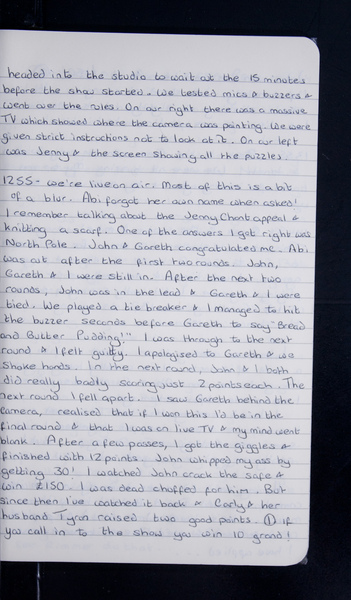 headed into the studio to wait out the 15 minutes
before the show started. We tested mics & buzzers &
went over the rules. On our right there was a massive
TV which showed where the camera was pointing. We were
given strict instructions not to look at it. On our left
was Jenny & the screen showing all the puzzles.
1255 - we're live on air. Most of this is a bit
of a blur. Abi forgot her own name when asked!
I remember talking about the Jenny Chant appeal &
knitting a scarf. One of the answers I got right was
North Pole. John & Gareth congratulated me. Abi
was out after the first two rounds. John,
Gareth & I were still in. After the next two
rounds, John was in the lead & Gareth & I were
tied. We played a tie breaker & I managed to hit
the buzzer seconds before Gareth to say "Bread
and Butter Pudding!" I was through to the next
round & I felt guilty. I apologised to Gareth & we
shook hands. In the next round, John & I both
did really badly scoring just 2 points each. The
next round I fell apart. I saw Gareth behind the
camera, realised that if I won this I'd be in the
final round & that I was on live TV & my mind went
blank. After a few passes, I got the giggles &
finished with 12 points. John whipped my ass by
getting 30! I watched John crack the safe &
win £150. I was dead chuffed for him. But
since then I've watched it back & Carly & her
husband Tyrin raised two good points. ① if
you call in to the show you win 10 grand!